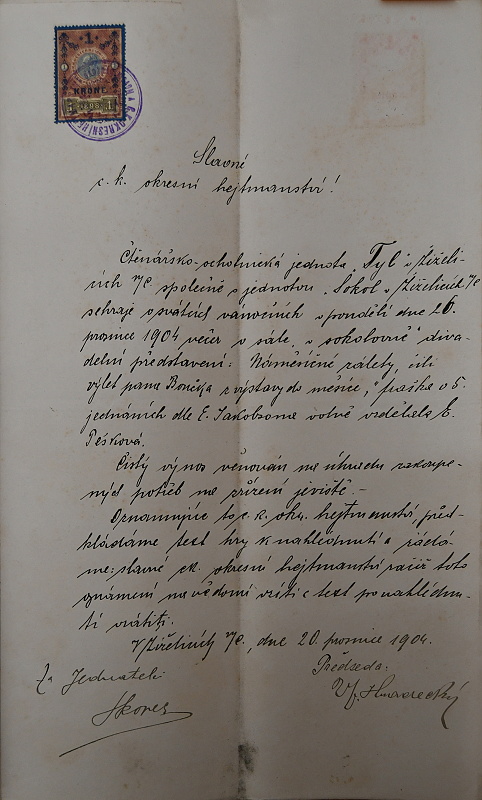 1
KRONE
Slavné
c. k. okresní hejtmanství!
Čtenářsko-ochotnická jednota „Tyl“ v Žíželi-
cích n/C společně s jednotou „Sokol“ v Žíželicích n/C
sehraje o svátcích vánočních v pondělí dne 26.
prosince 1904 večer v sále „v sokolovně“ diva-
delní představení: Náměsíčné zálety, čili
výlet pana Broučka z výstavy do měsíce,“ fraška v 5.
jednáních dle E. Jakobsona volně vzdělala E.
Pešková.
Čistý výnos věnován na úhradu zakoupe-
ných potřeb na zřízení jeviště.-
Oznamujíce to c. k. okr. hejtmanství, před-
kládáme text hry k nahlédnutí a žádá-
me: slavné c.k. okresní hejtmanství račiž toto
oznámení na vědomí vzíti a text po nahlédnu-
tí vrátiti.
V Žíželicích n/C., dne 20. prosince 1904.
Za Jednatele: Předseda: